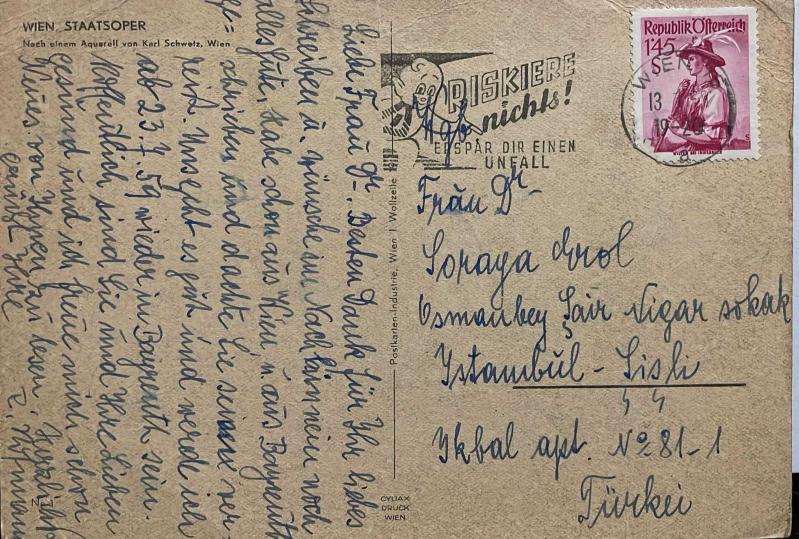 WIEN, STAATSOPER
Nach einem Aquarell von Karl Schwetz, Wien
Liebe Frau Dr. Besten Dank für Ihr liebes
Schreiben u. wünsche im Nachhinein noch
alles Gute, habe schon aus Wien u. aus Bayreuth ge=
schrieben und dachte Sie seien ver-
reist. Uns geht es gut und werde ich
ab 23.7.59 wieder in Bayreuth sein.
Hoffentlich sind Sie und Ihre Lieben
gesund und ich freue mich schon
Neues von Ihnen zu lesen. Herzlichst
Ihre
Postkarten-Industrie, Wien I Wollzeile
CYLIAX
DRUCK
WIEN
RISKIERE
nichts!
ERSPAR DIR EINEN
UNFALL
Republik Österreich
1·45
S
WIEN
13
19-20
Frau Dr
Soraya Erol
Osmanbey Şair Nigar sokak
Istambul - Sisli
Ikbal apt. No 81-1
Türkei